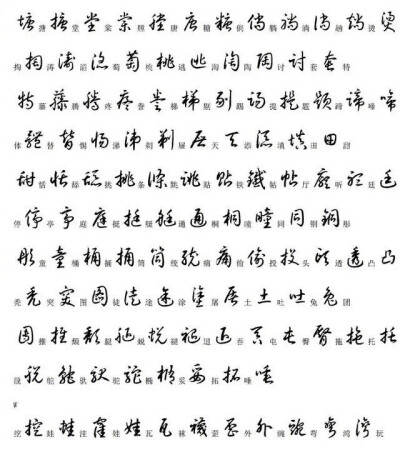 塘搪堂棠膛唐糖倘躺淌趟烫
掏涛滔萄桃逃淘陶讨套特
藤腾疼誊梯剔踢提题蹄啼
体替惕涕剃屉天添填田甜
恬舔挑条跳贴铁帖厅听廷
停亭庭挺艇通桐瞳同铜彤
童桶捅筒统痛偷投头透凸
秃突图徒途涂屠土吐兔团
推颓腿蜕褪退吞屯臀拖托
脱鸵驮驼椭妥拓唾
W
挖蛙洼娃瓦袜歪外豌弯湾玩